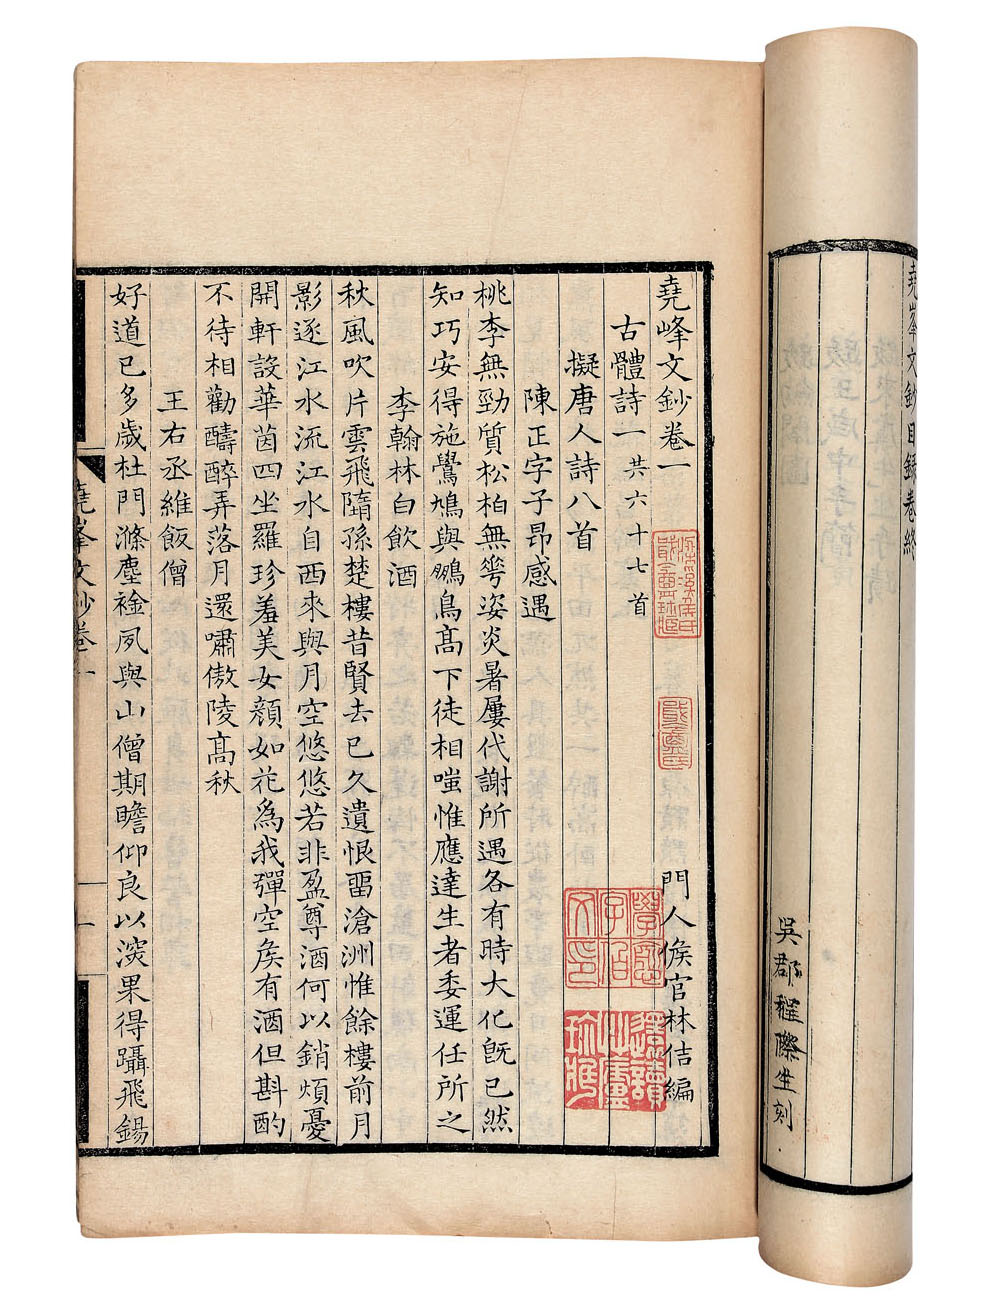 堯峯文鈔目録卷終
吳郡程際生刻
堯峰文鈔卷一
門人侯官林佶編
古體詩一共六十七首
擬唐人詩八首
陳正字子昻感遇
桃李無勁質松柏無芳姿炎暑屢代謝所遇各有時大化旣已然
知巧安得施鷽鳩與鵬鳥髙下徒相嗤惟應達生者委運任所之
李翰林白飲酒
秋風吹片雲飛隨孫楚樓昔賢去已久遺恨畱滄洲惟餘樓前月
影逐江水流江水自西來與月空悠悠若非盈尊酒何以銷煩憂
開軒設華茵四坐羅珍羞美女顏如花為我彈空侯有酒但斟酌
不待相勸醻醉弄落月還嘯傲陵髙秋
王右丞維飯僧
好道已多歲杜門滌塵襟夙與山僧期瞻仰良以淡果得躡飛錫
堯峯文鈔卷一
一